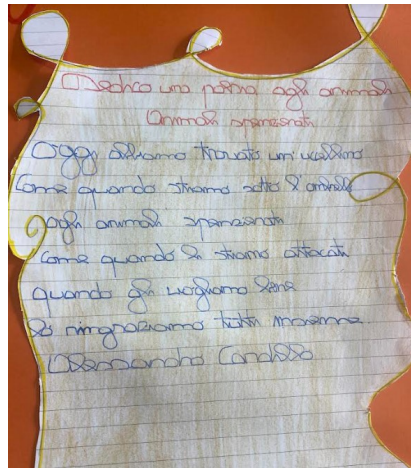 Dedico una poesia agli animali
Animali spensierati
Oggi abbiamo trovato un'uccellino
come quando stiamo sotto l'ombrello
agli animali spensierati
come quando li stiamo attaccati
quando gli vogliamo bene
e ringraziamo tutti insieme
Alessandro